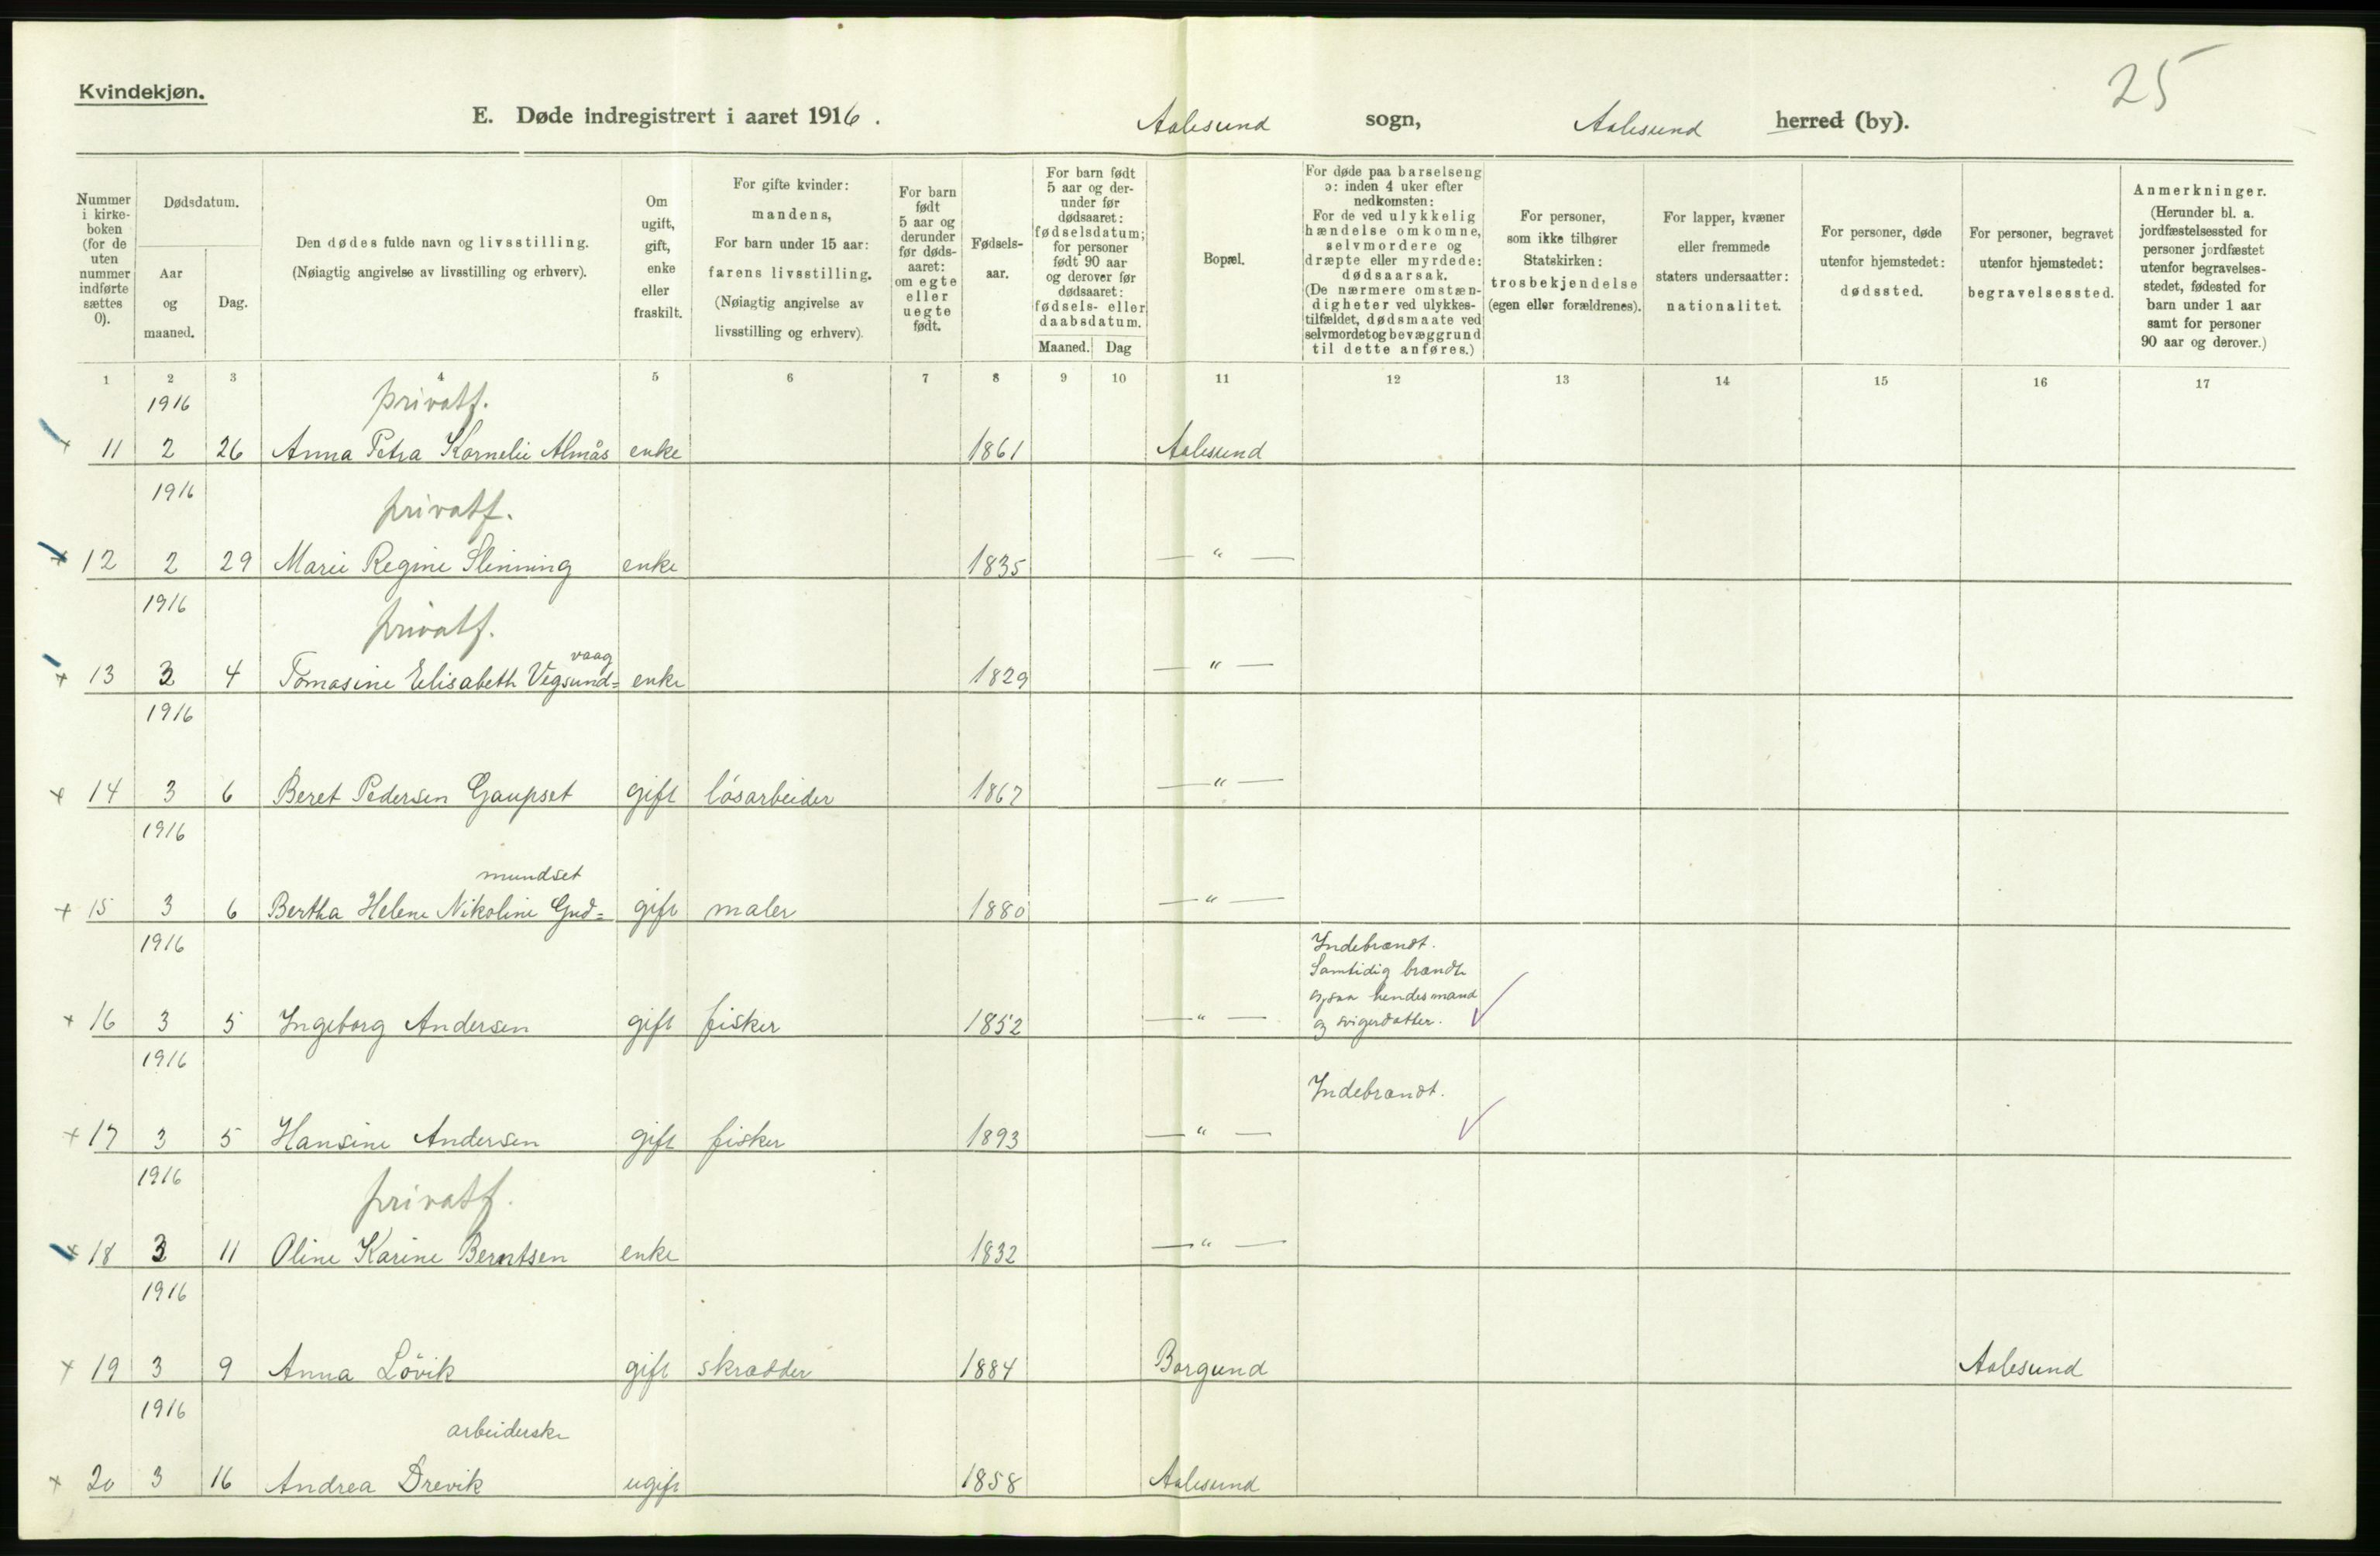 25
Kvindekjøn.
E. Døde indregistrert i aaret 1916. Aalesund sogn, Aalesund herred (by).
Nummer i kirkeboken (for de uten nummer indførte sættes 0).
Dødsdatum.
Aar og maaned.
Dag.
Den dødes fulde navn og livsstilling.
(Nøiagtig angivelse av livsstilling og erhverv).
Om ugift, gift, enke eller fraskilt.
For gifte kvinder: mandens,
For barn under 15 aar: farens livsstilling.
(Nøiagtig angivelse av livsstilling og erhverv).
For barn født 5 aar og derunder før dødsaaret: om egte eller uegte født.
Fødselsaar.
For barn født 5 aar og derunder før dødsaaret: fødselsdatum; for personer født 90 aar og derover før dødsaaret: fødsels- eller daabsdatum.
Maaned. Dag
Bopæl.
For døde paa barselseng ɔ: inden 4 uker efter nedkomsten:
For de ved ulykkelig hændelse omkomne, selvmordere og dræpte eller myrdede: dødsaarsak.
(De nærmere omstændigheter ved ulykkestilfældet, dødsmaate ved selvmordet og bevæggrund til dette anføres.)
For personer, som ikke tilhører Statskirken: trosbekjendelse (egen eller forældrenes).
For lapper, kvæner eller fremmede staters undersaatter: nationalitet.
For personer, døde utenfor hjemstedet: dødssted.
For personer, begravet utenfor hjemstedet: begravelsessted.
Anmerkninger.
(Herunder bl. a. jordfæstelsessted for personer jordfæstet utenfor begravelsesstedet, fødested for barn under 1 aar samt for personer 90 aar og derover.)
1 2 3 4 5 6 7 8 9 10 11 12 13 14 15 16 17
1916 privatf.
11 2 26 Anna Petra Kornelie Almås enke 1861 Aalesund
1916 privatf.
12 2 29 Marie Regine Slinning enke 1835 — " —
1916 privatf.
vaag
13 3 4 Tomasine Elisabeth Vegsund= enke 1829 — " —
1916
14 3 6 Beret Pedersen Gaupset gift løsarbeider 1867 — " —
1916
mundset
15 3 6 Bertha Helene Nikoline Gud= gift maler 1880 — " —
1916 Indebrændt.
Samtidig brændte
ogsaa hendes mand
16 3 5 Ingeborg Andersen gift fisker 1852 — " — og svigerdatter.
1916
Indebrændt.
17 3 5 Hansine Andersen gift fisker 1893 — " —
1916 privatf.
18 3 11 Oline Karine Berntsen enke 1832 — " —
1916
19 3 9 Anna Lövik gift skrædder 1884 Borgund Aalesund
1916
arbeiderske
20 3 16 Andrea Drevik ugift 1858 Aalesund